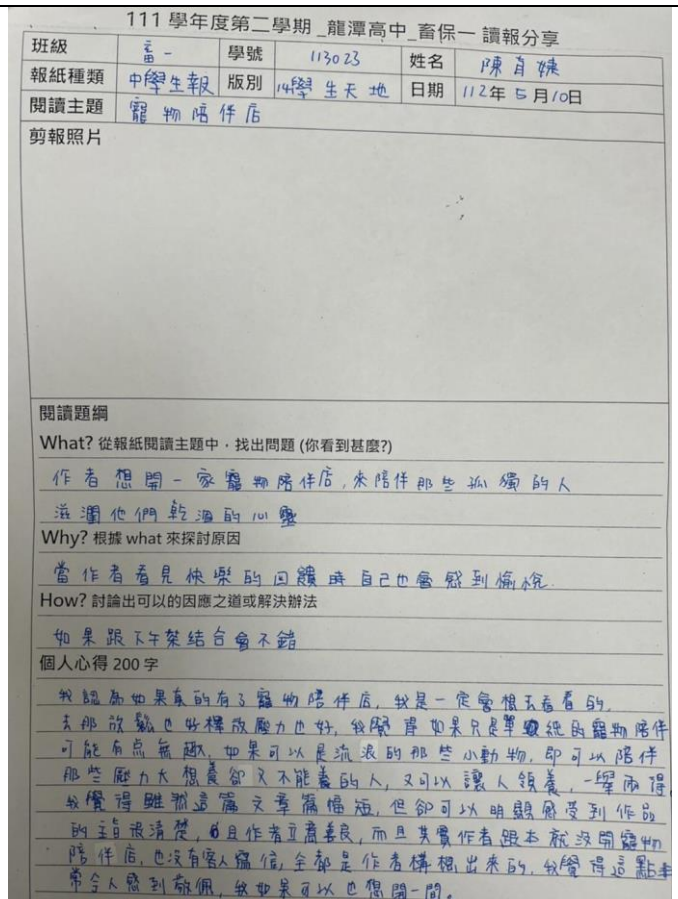 111 學年度第二學期 _龍潭高中_畜保一 讀報分享
班級 畜一 學號 113023 姓名 陳育
報紙種類 中學生報 版別 14學生天地 日期 112年5月10日
閱讀主題 寵物陪伴店
剪報照片
閱讀題綱
What? 從報紙閱讀主題中，找出問題 (你看到甚麼?)
作者想開一家寵物陪伴店,來陪伴那些孤獨的人
滋潤他們乾涸的心靈
Why? 根據 what 來探討原因
當作者看見快樂的回饋時自己也會感到愉悅.
How? 討論出可以的因應之道或解決辦法
如果跟下午茶結合會不錯
個人心得 200 字
我認為如果真的有了寵物陪伴店,我是一定會想去看看的,
去那放鬆也好釋放壓力也好,我覺得如果只是單純的寵物陪伴
可能有点無趣,如果可以是流浪的那些小動物,即可以陪伴
那些壓力大想養卻又不能養的人,又可以讓人領養,一舉兩得
我覺得雖然這篇文章篇幅短,但卻可以明顯感受到作品
的主旨很清楚,且作者立意善良,而且其實作者跟本就沒開寵物
陪伴店,也沒有客人寫信,全都是作者構想出來的,我覺得這點非
常令人感到敬佩,我如果可以也想開一間。